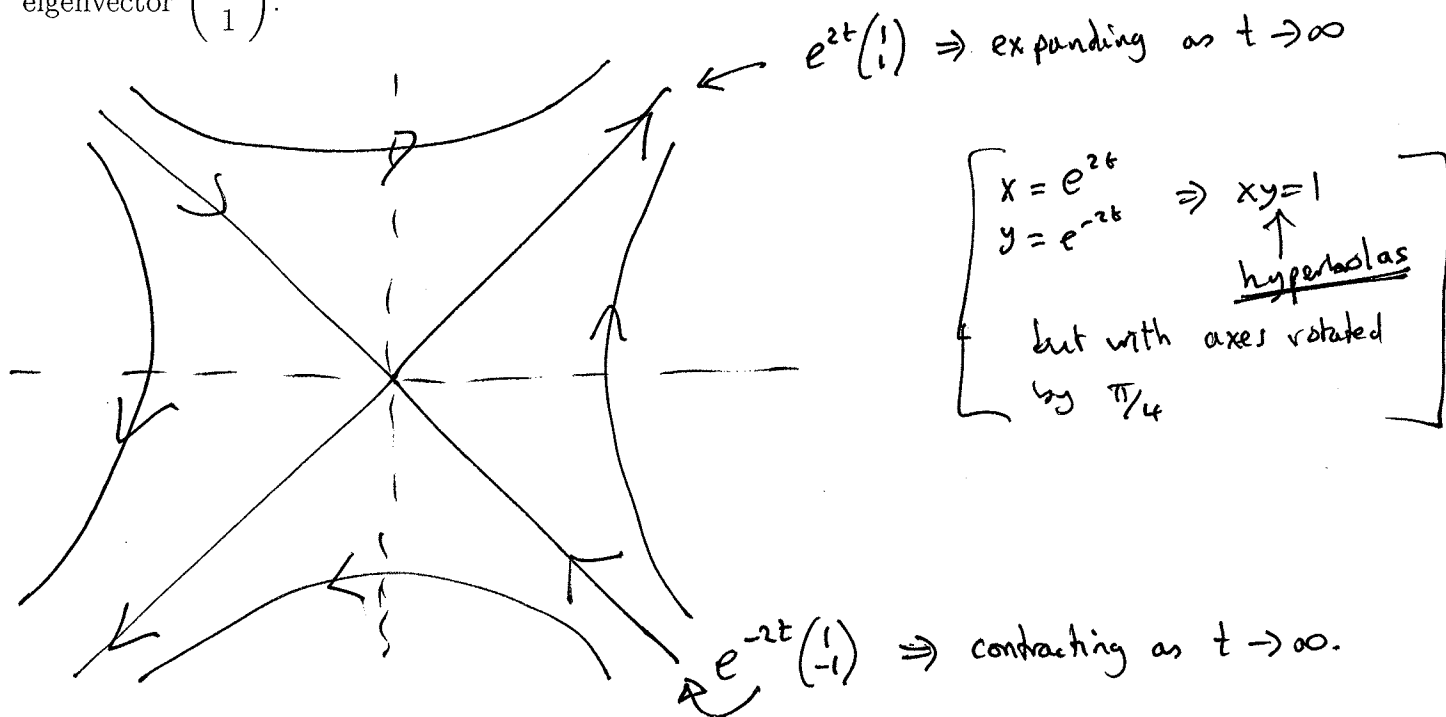 eigenvector ( 1 ).
e^{2t} (1 1) ⇒ expanding as t → ∞
x = e^{2t}
y = e^{-2t} ⇒ xy = 1
hyperbolas
but with axes rotated
by π/4
e^{-2t} (1 -1) ⇒ contracting as t → ∞.